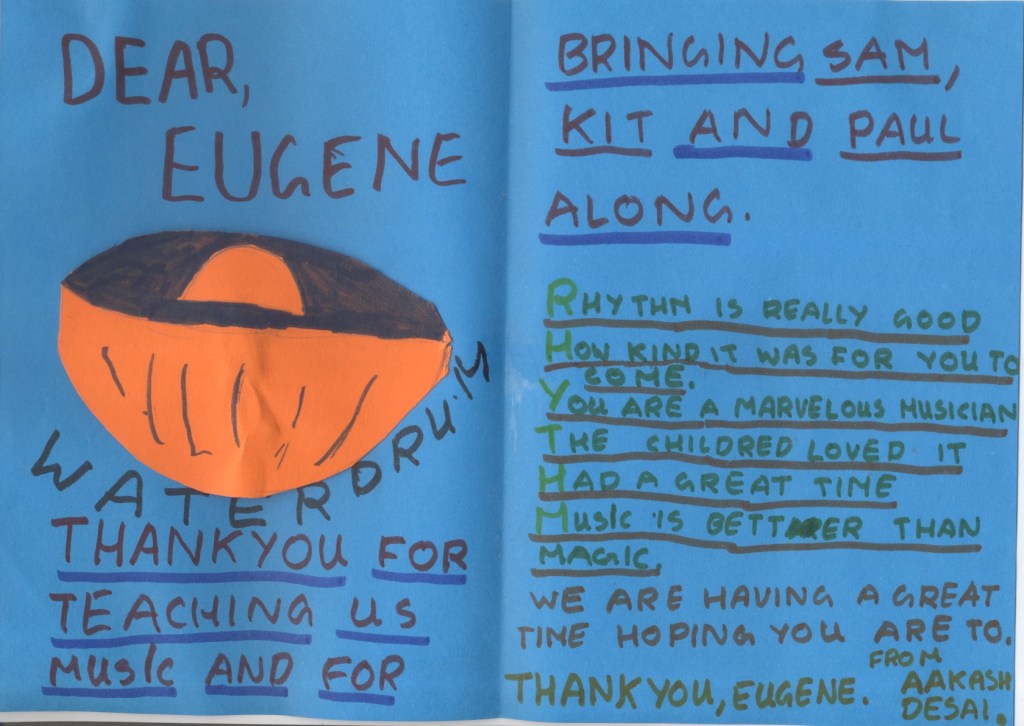 DEAR,
EUGENE
WATERDRUM
THANKYOU FOR
TEACHING US
MUSIC AND FOR
BRINGING SAM,
KIT AND PAUL
ALONG.
RHYTHM IS REALLY GOOD
HOW KIND IT WAS FOR YOU TO
COME.
YOU ARE A MARVELOUS MUSICIAN
THE CHILDRED LOVED IT
HAD A GREAT TIME
MUSIC IS BETTER THAN
MAGIC.
WE ARE HAVING A GREAT
TIME HOPING YOU ARE TO.
FROM
THANK YOU, EUGENE. AAKASH
DESAI.